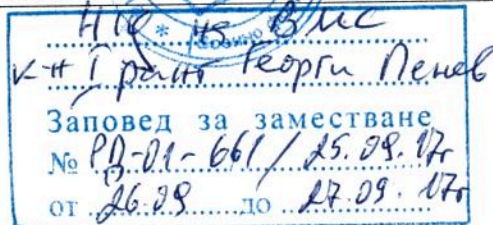 НЩ на ВМС
к-н I ранг Георги Пенев
Заповед за заместване
№ РД-01-661 / 25.09.17г
от 26.09 до 27.09.17г